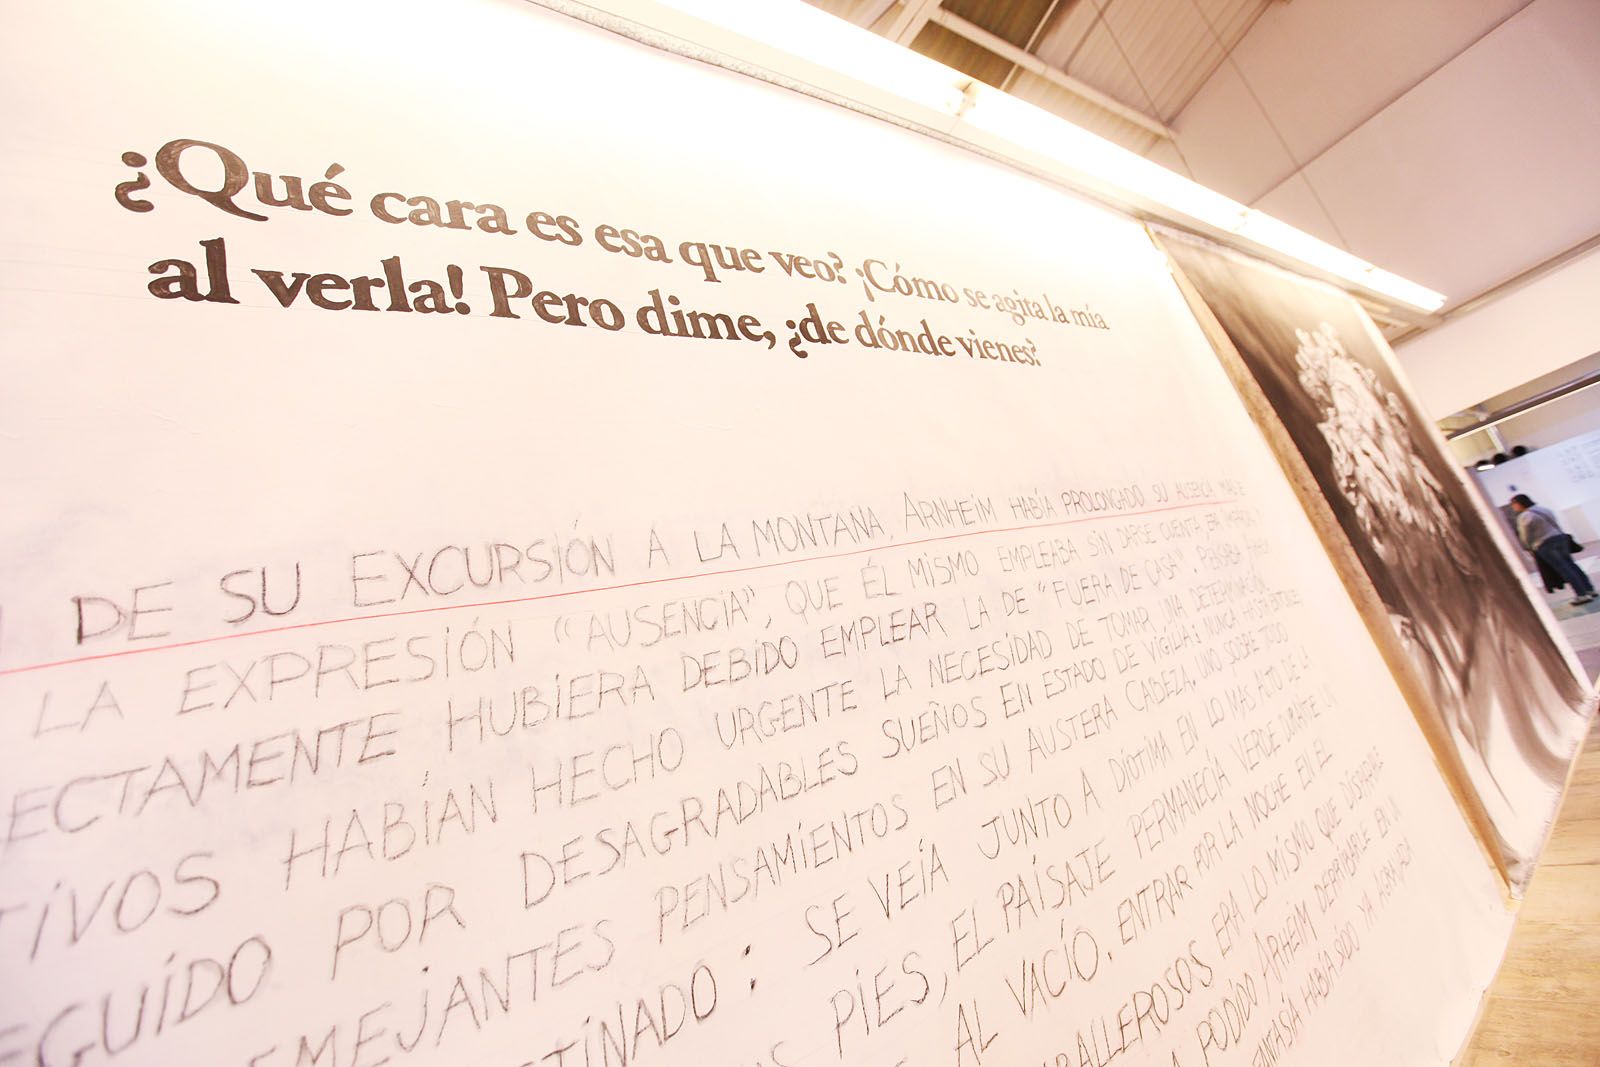 ¿Qué cara es esa que veo? ¡Cómo se agita la mía
al verla! Pero dime, ¿de dónde vienes?
DE SU EXCURSIÓN A LA MONTANA, ARNHEIM HABÍA PROLONGADO SU AUSENCIA
LA EXPRESIÓN "AUSENCIA", QUE ÉL MISMO EMPLEABA SIN DARSE CUENTA, ERA
ECTAMENTE HUBIERA DEBIDO EMPLEAR LA DE "FUERA DE CASA". PENSABA
TIVOS HABÍAN HECHO URGENTE LA NECESIDAD DE TOMAR UNA DETERMINACIÓN.
EGUÍDO POR DESAGRADABLES SUEÑOS EN ESTADO DE VIGILIA; NUNCA
EMEJANTES PENSAMIENTOS EN SU AUSTERA CABEZA. UNO SOBRE TODO
TINADO: SE VEÍA JUNTO A DIÓTIMA EN LO MAS ALTO DE LA
PIES, EL PAÍSAJE PERMANECÍA VERDE DURANTE UN
AL VACÍO. ENTRAR POR LA NOCHE EN EL
BALLEROSOS ERA LO MÍSMO QUE DISPARAR
PODÍDO ARHEIM DERRIBARLE EN UN
FANTASÍA HABÍA SÍDO YA